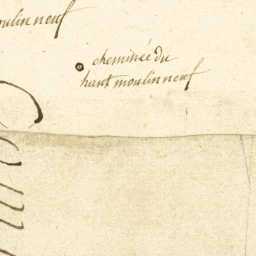 oulin neuf
cheminée du
haut moulin neuf